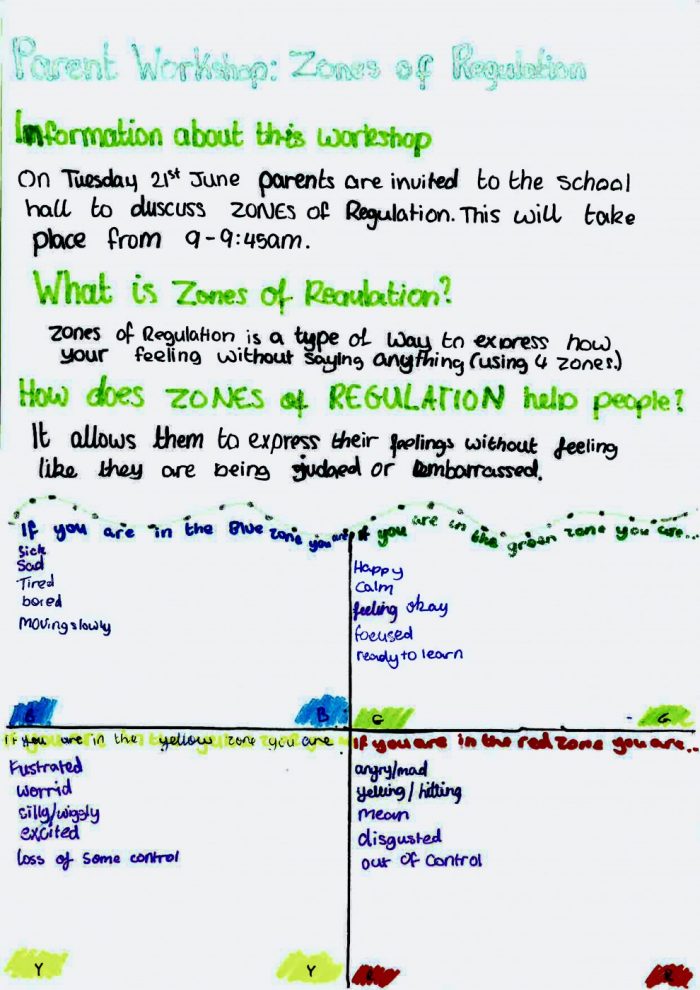 Parent Workshop: Zones of Regulation
Information about this workshop
On Tuesday 21st June parents are invited to the school
hall to duscuss ZONES of Regulation. This will take
place from 9-9:45am.
What is Zones of Regulation?
Zones of Regulation is a type of way to express how
your feeling without saying anything (using 4 zones.)
How does ZONES of REGULATION help people?
It allows them to express their feelings without feeling
like they are being judged or embarrassed.
If you are in the Blue zone you are
Sick
Sad
Tired
bored
moving slowly
B B
If you are in the green zone you are...
Happy
Calm
feeling okay
focused
ready to learn
G G
If you are in the yellow zone you are
Fustrated
worrid
silly/wiggly
excited
loss of some control
Y Y
If you are in the red zone you are...
angry/mad
yelling/hitting
mean
disgusted
out of control
R R